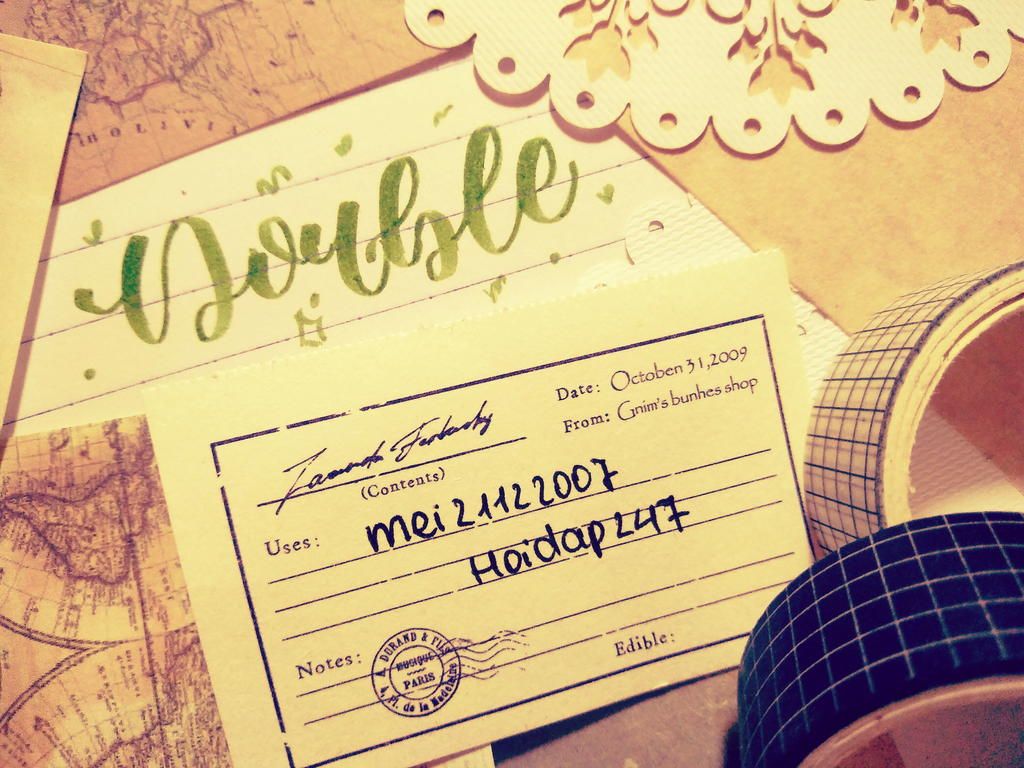 BOLIVIA
Double
Date: October 31, 2009
From: Gnim's bunhes shop
(Contents)
Uses: mei21122007
Hoidap247
Notes:
A. DORAND & FILS
MUSIQUE
PARIS
4, Pl. de la Madeleine
Edible: